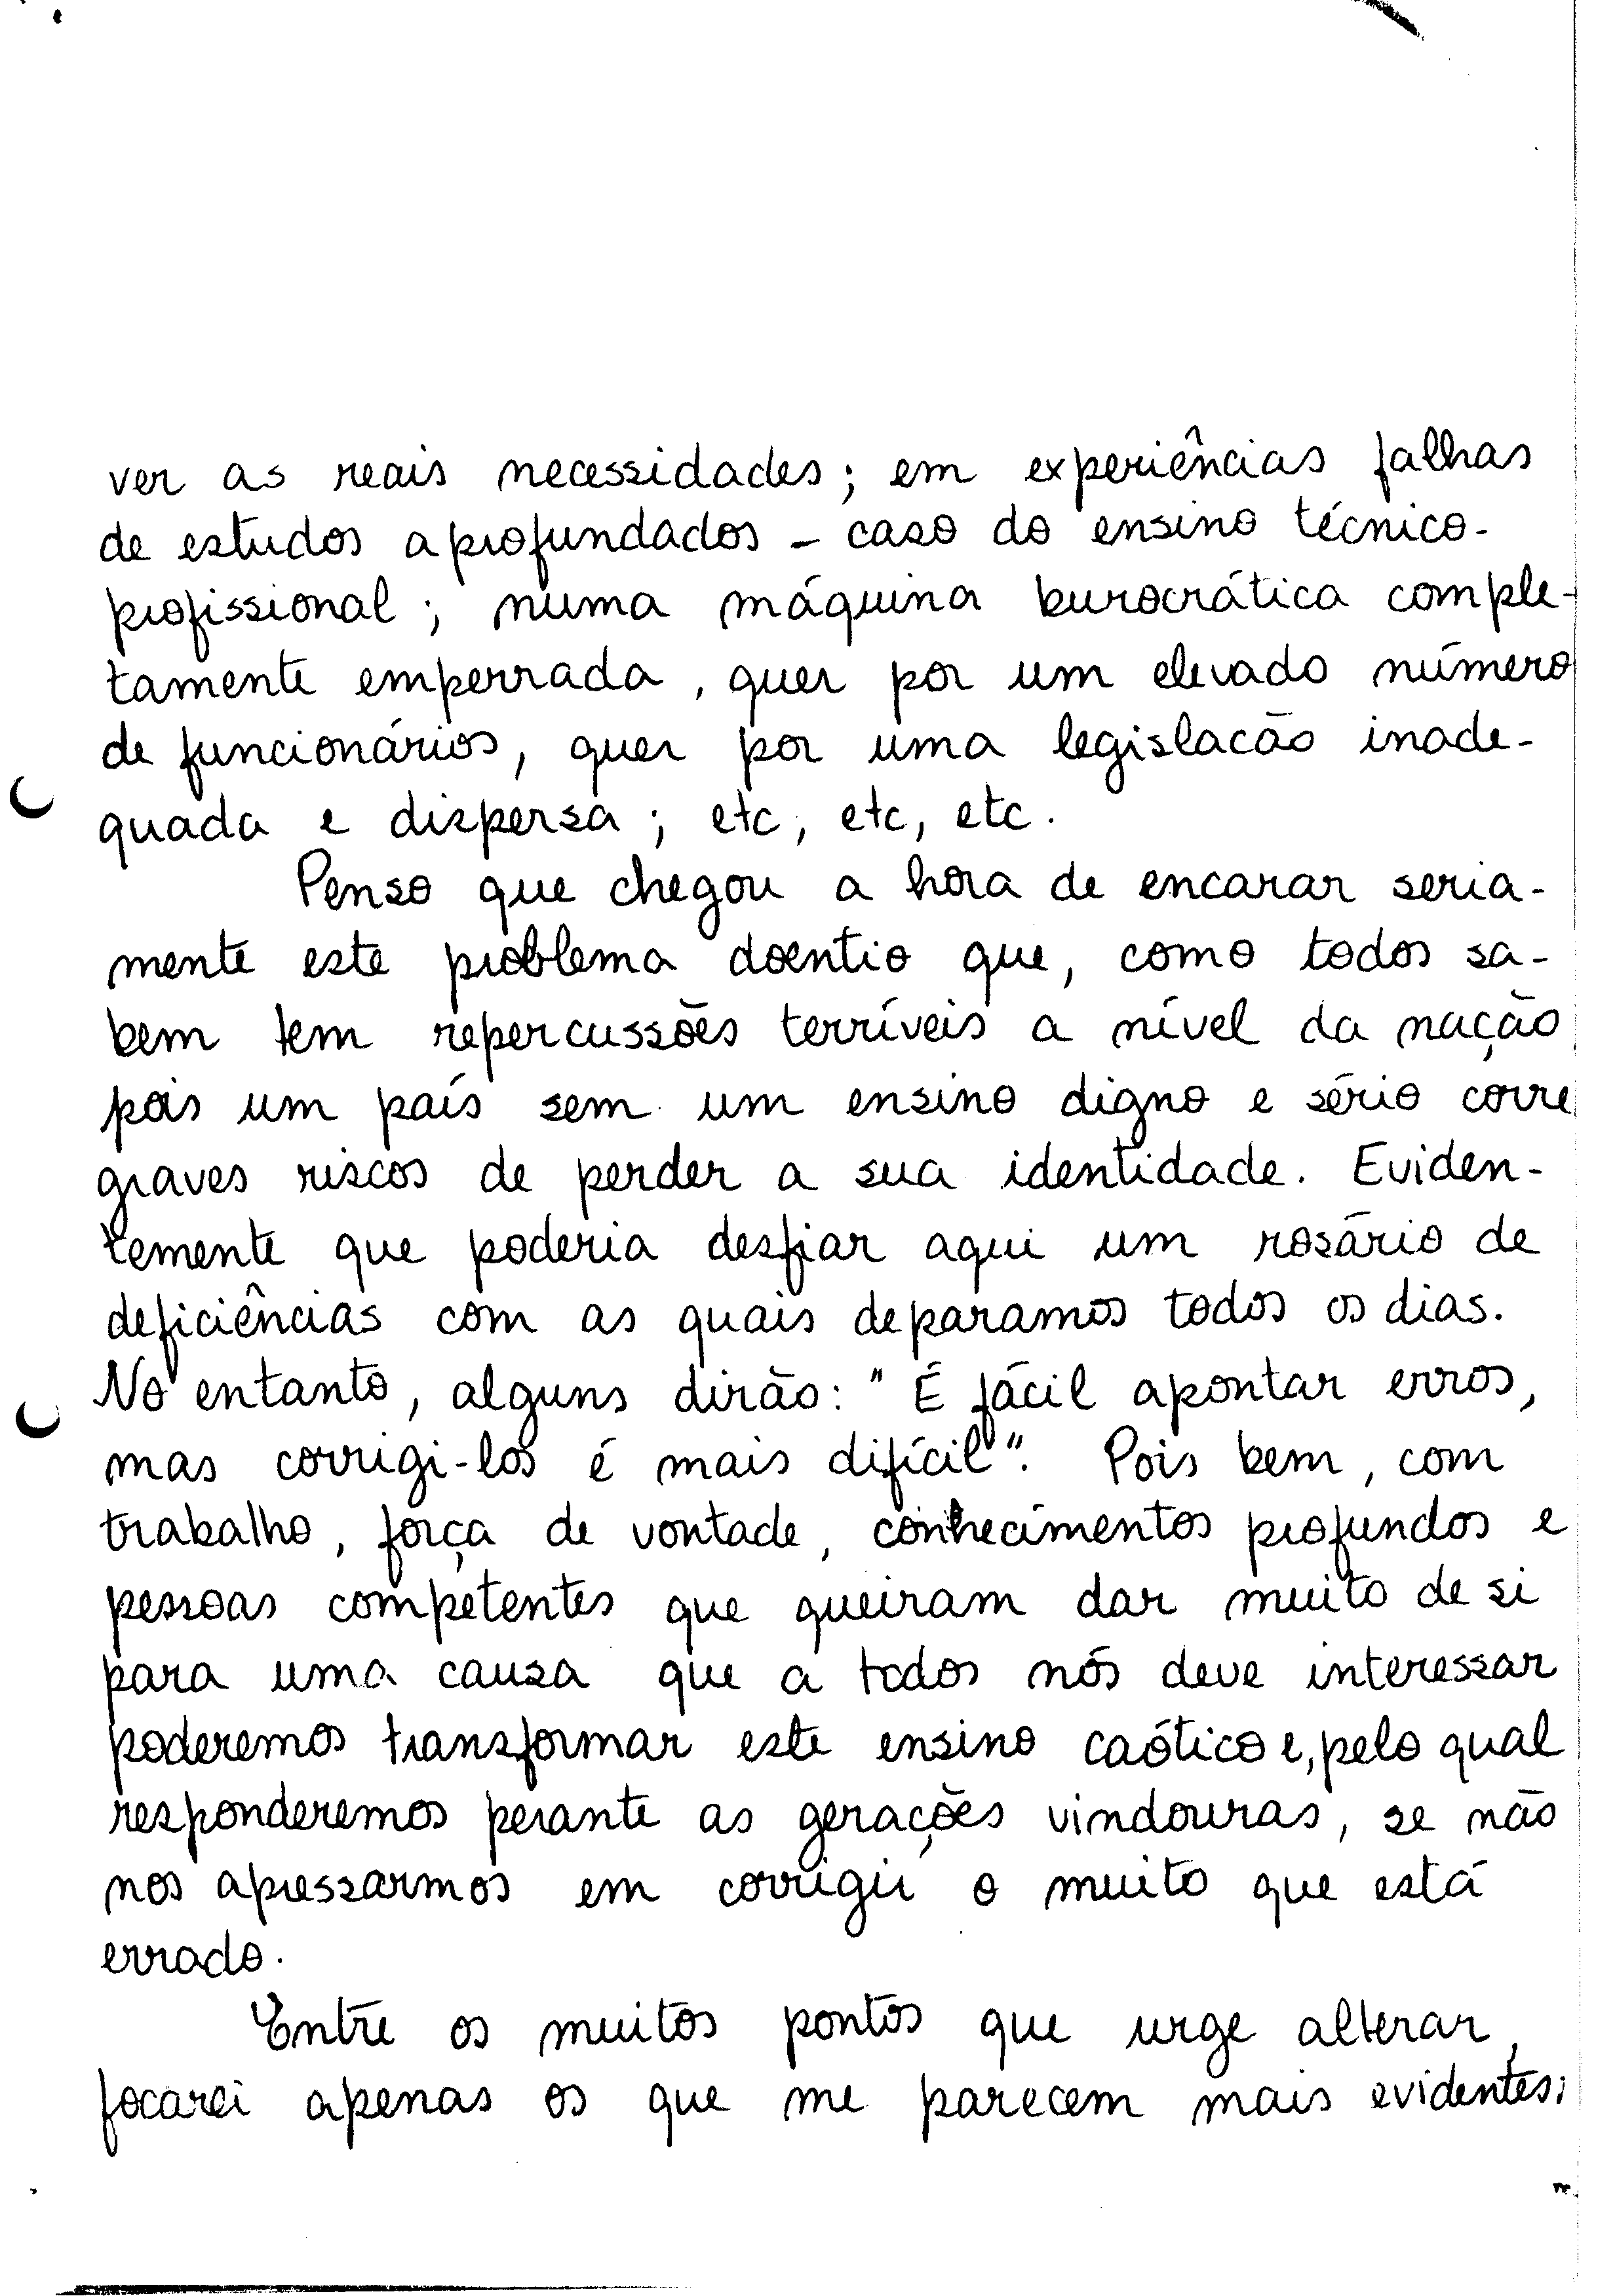 ver as reais necessidades; em experiências falhas
de estudos aprofundados - caso do ensino técnico-
profissional; numa máquina burocrática comple-
tamente emperrada, quer por um elevado número
de funcionários, quer por uma legislacão inade-
quada e dispersa; etc, etc, etc.
Penso que chegou a hora de encarar seria-
mente este problema doentio que, como todos sa-
bem tem repercussões terríveis a nível da nação
pois um país sem um ensino digno e sério corre
graves riscos de perder a sua identidade. Eviden-
temente que poderia desfiar aqui um rosário de
deficiências com as quais deparamos todos os dias.
No entanto, alguns dirão: "É fácil apontar erros,
mas corrigi-los é mais difícil". Pois bem, com
trabalho, força de vontade, conhecimentos profundos e
pessoas competentes que queiram dar muito de si
para uma causa que a todos nós deve interessar
poderemos transformar este ensino caótico e, pelo qual
responderemos perante as gerações vindouras, se não
nos apressarmos em corrigir o muito que está
errado.
Entre os muitos pontos que urge alterar,
focarei apenas os que me parecem mais evidentes: